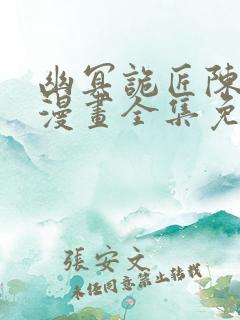 幽冥詭匠陳
漫畫全集免
張安文
未经同意禁止转载